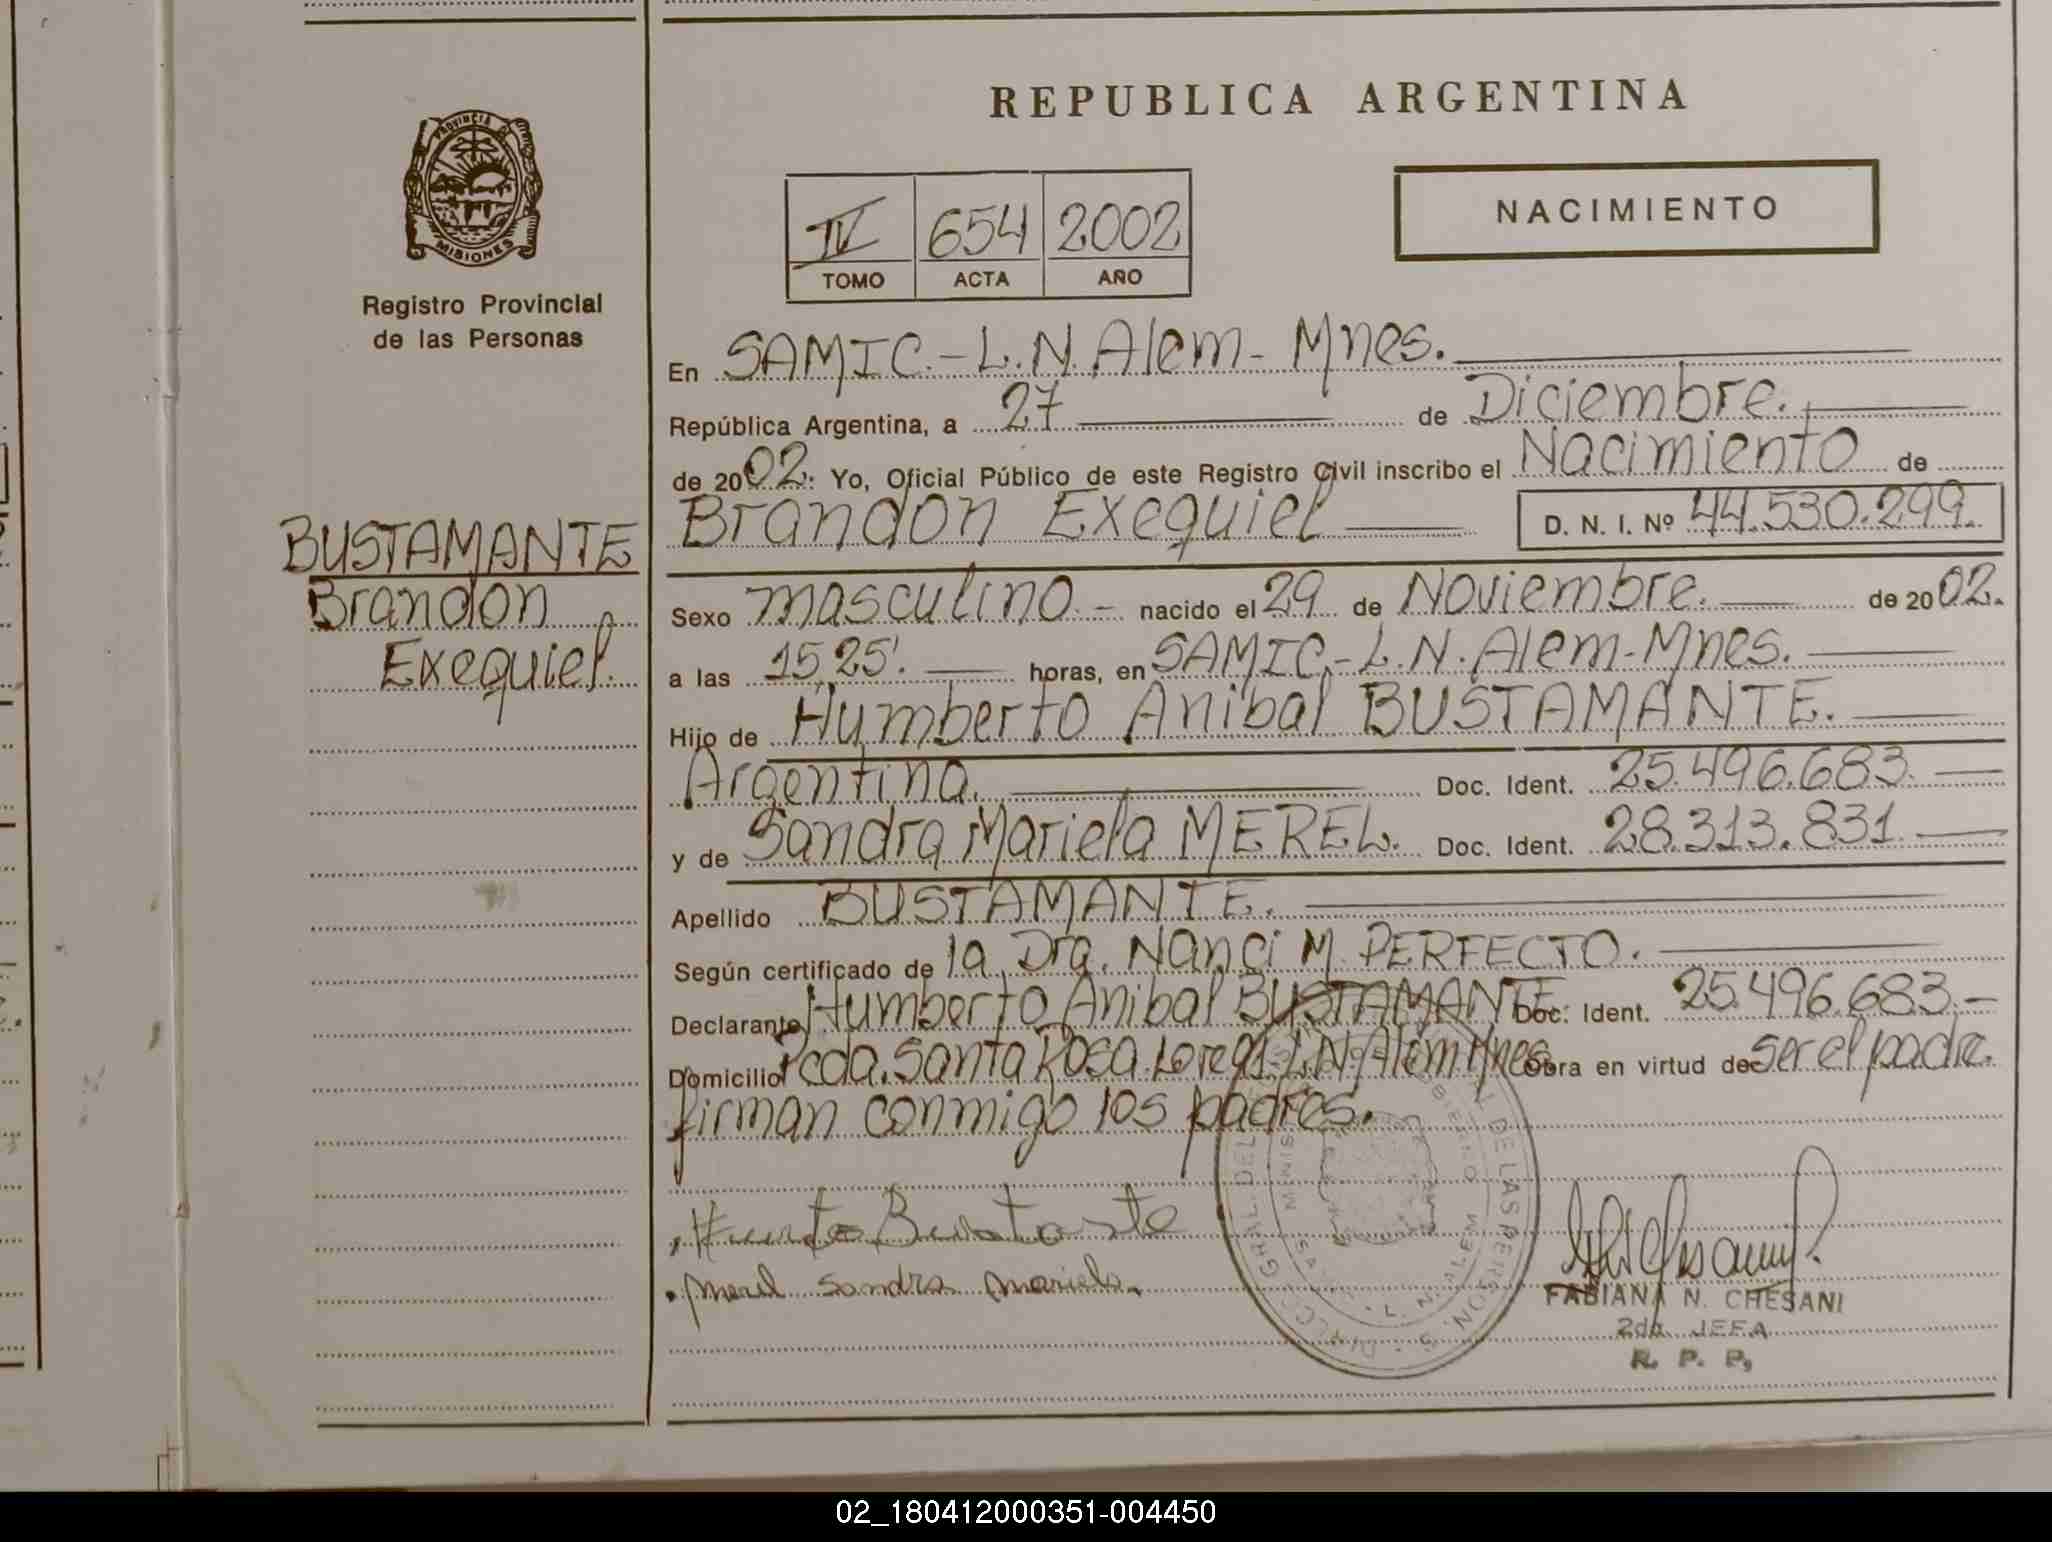 REPUBLICA ARGENTINA
PROVINCIA DE
MISIONES
Registro Provincial
de las Personas
IV 654 2002
TOMO ACTA AÑO
NACIMIENTO
BUSTAMANTE
Brandon
Exequiel.
En SAMIC.-L.N.Alem-Mnes.
República Argentina, a 27 de Diciembre.
de 2002. Yo, Oficial Público de este Registro Civil inscribo el Nacimiento de
Brandon Exequiel D. N. I. Nº 44.530.299.
Sexo masculino.- nacido el 29 de Noviembre. de 2002.
a las 15,25'. horas, en SAMIC.-L.N.Alem-Mnes.
Hijo de Humberto Anibal BUSTAMANTE.
Argentina. Doc. Ident. 25.496.683.
y de Sandra Mariela MEREL. Doc. Ident. 28.313.831
Apellido BUSTAMANTE.
Según certificado de la Dra. Nanci M. PERFECTO.
Declarante Humberto Anibal BUSTAMANTE Doc. Ident. 25.496.683.-
Domicilio Pcda. Santa Rosa L.N.Alem Mnes. Obra en virtud de ser el padre.
firman conmigo los padres.
Merel Sandra Mariela.
DE LAS PERSONAS
L. N. ALEM
FABIANA N. CHESANI
2da. JEFA
R. P. P,
02_180412000351-004450